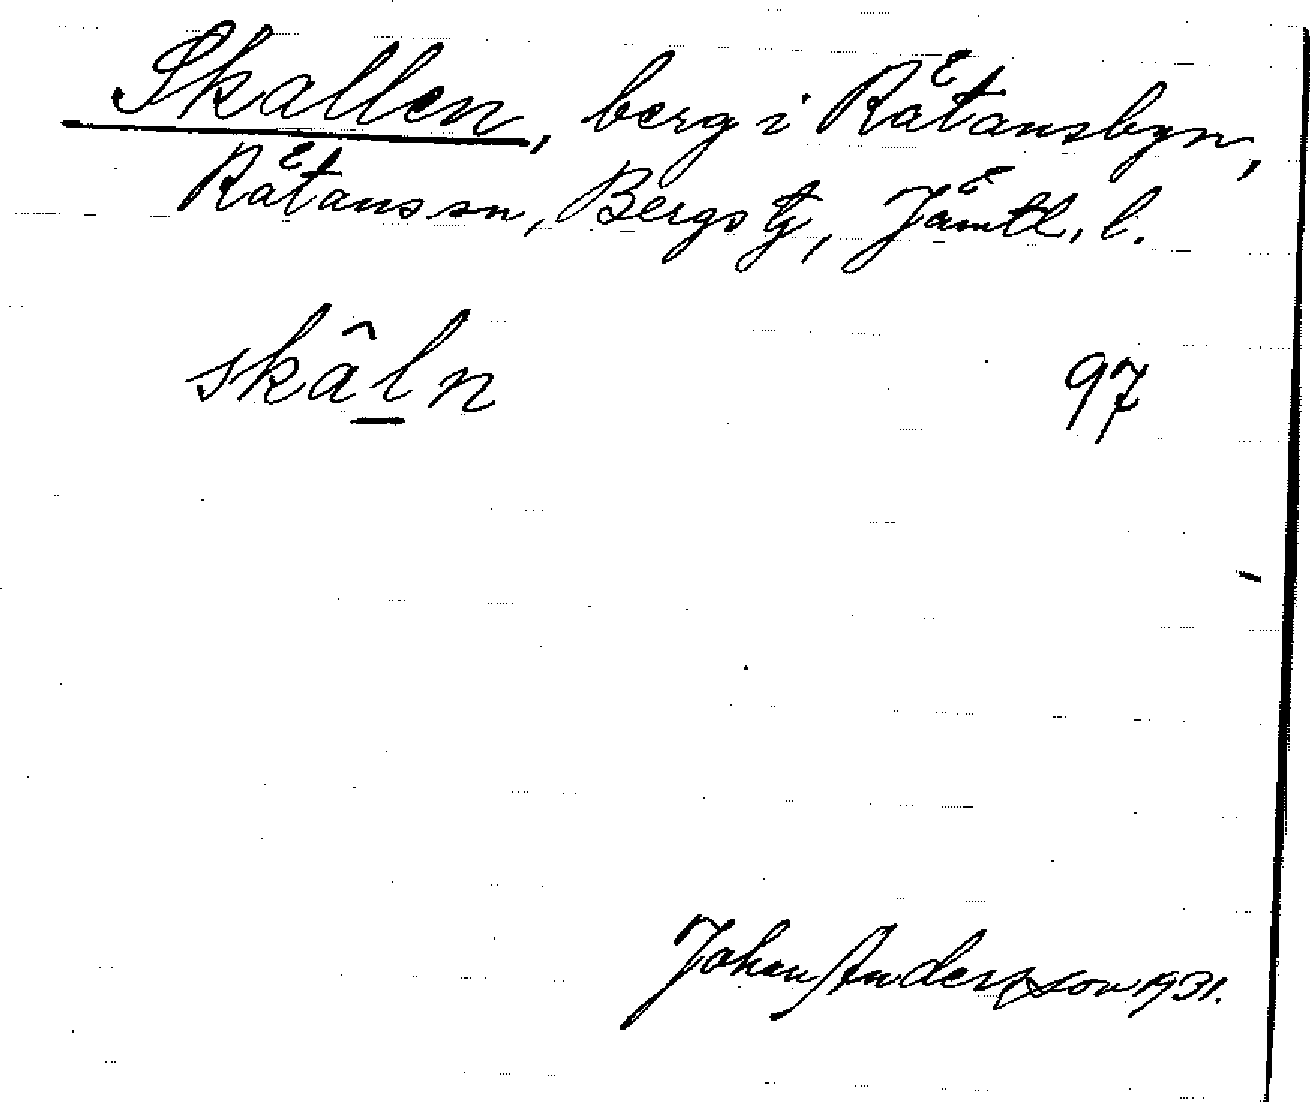 Skallen, berg i Rätansbyn,
Rätans sn, Bergs tg, Jämtl. l.
skâln 97
Johan Andersson 1931.